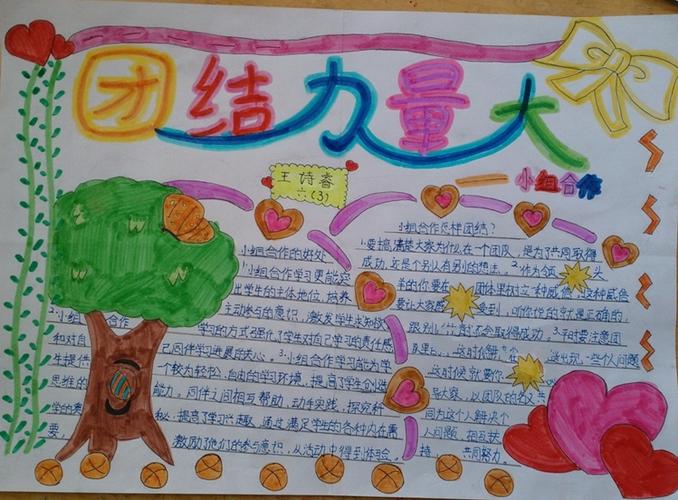 团结力量大
——小组合作
王诗睿
六(3)
小组合作的好处
1.小组合作学习更能突
出学生的主体地位，培养
主动参与的意识，激发学生求知欲
2.小组合作学习的方式强化了学生对自己学习的责任感
和对自己同伴学习进展的关心。3.小组合作学习能为学
生提供一个较为轻松、自由的学习环境，提高了学生创造
思维的能力。同伴之间相互帮助，动手实践，探究
秘，提高了学习兴趣，通过满足学生的各种内在需
要，激励了他们的参与意识，从活动中得到体验。
小组合作怎样团结？
1.要搞清楚大家为什么在一个团队，是为了共同取得
成功，还是个别人有别的想法。2.作为领头
羊的你，要在团体里树立一种威信，这种威信
要让大家感受到，听你说的就是正确的，
跟别人竞争才会取得成功。3.平时要注意团
队里，这时候会出现一些个人问题
这时候就要你
导大家，以团队的名义共
同为这个人解决个
人问题，相互扶
持，共同努力。